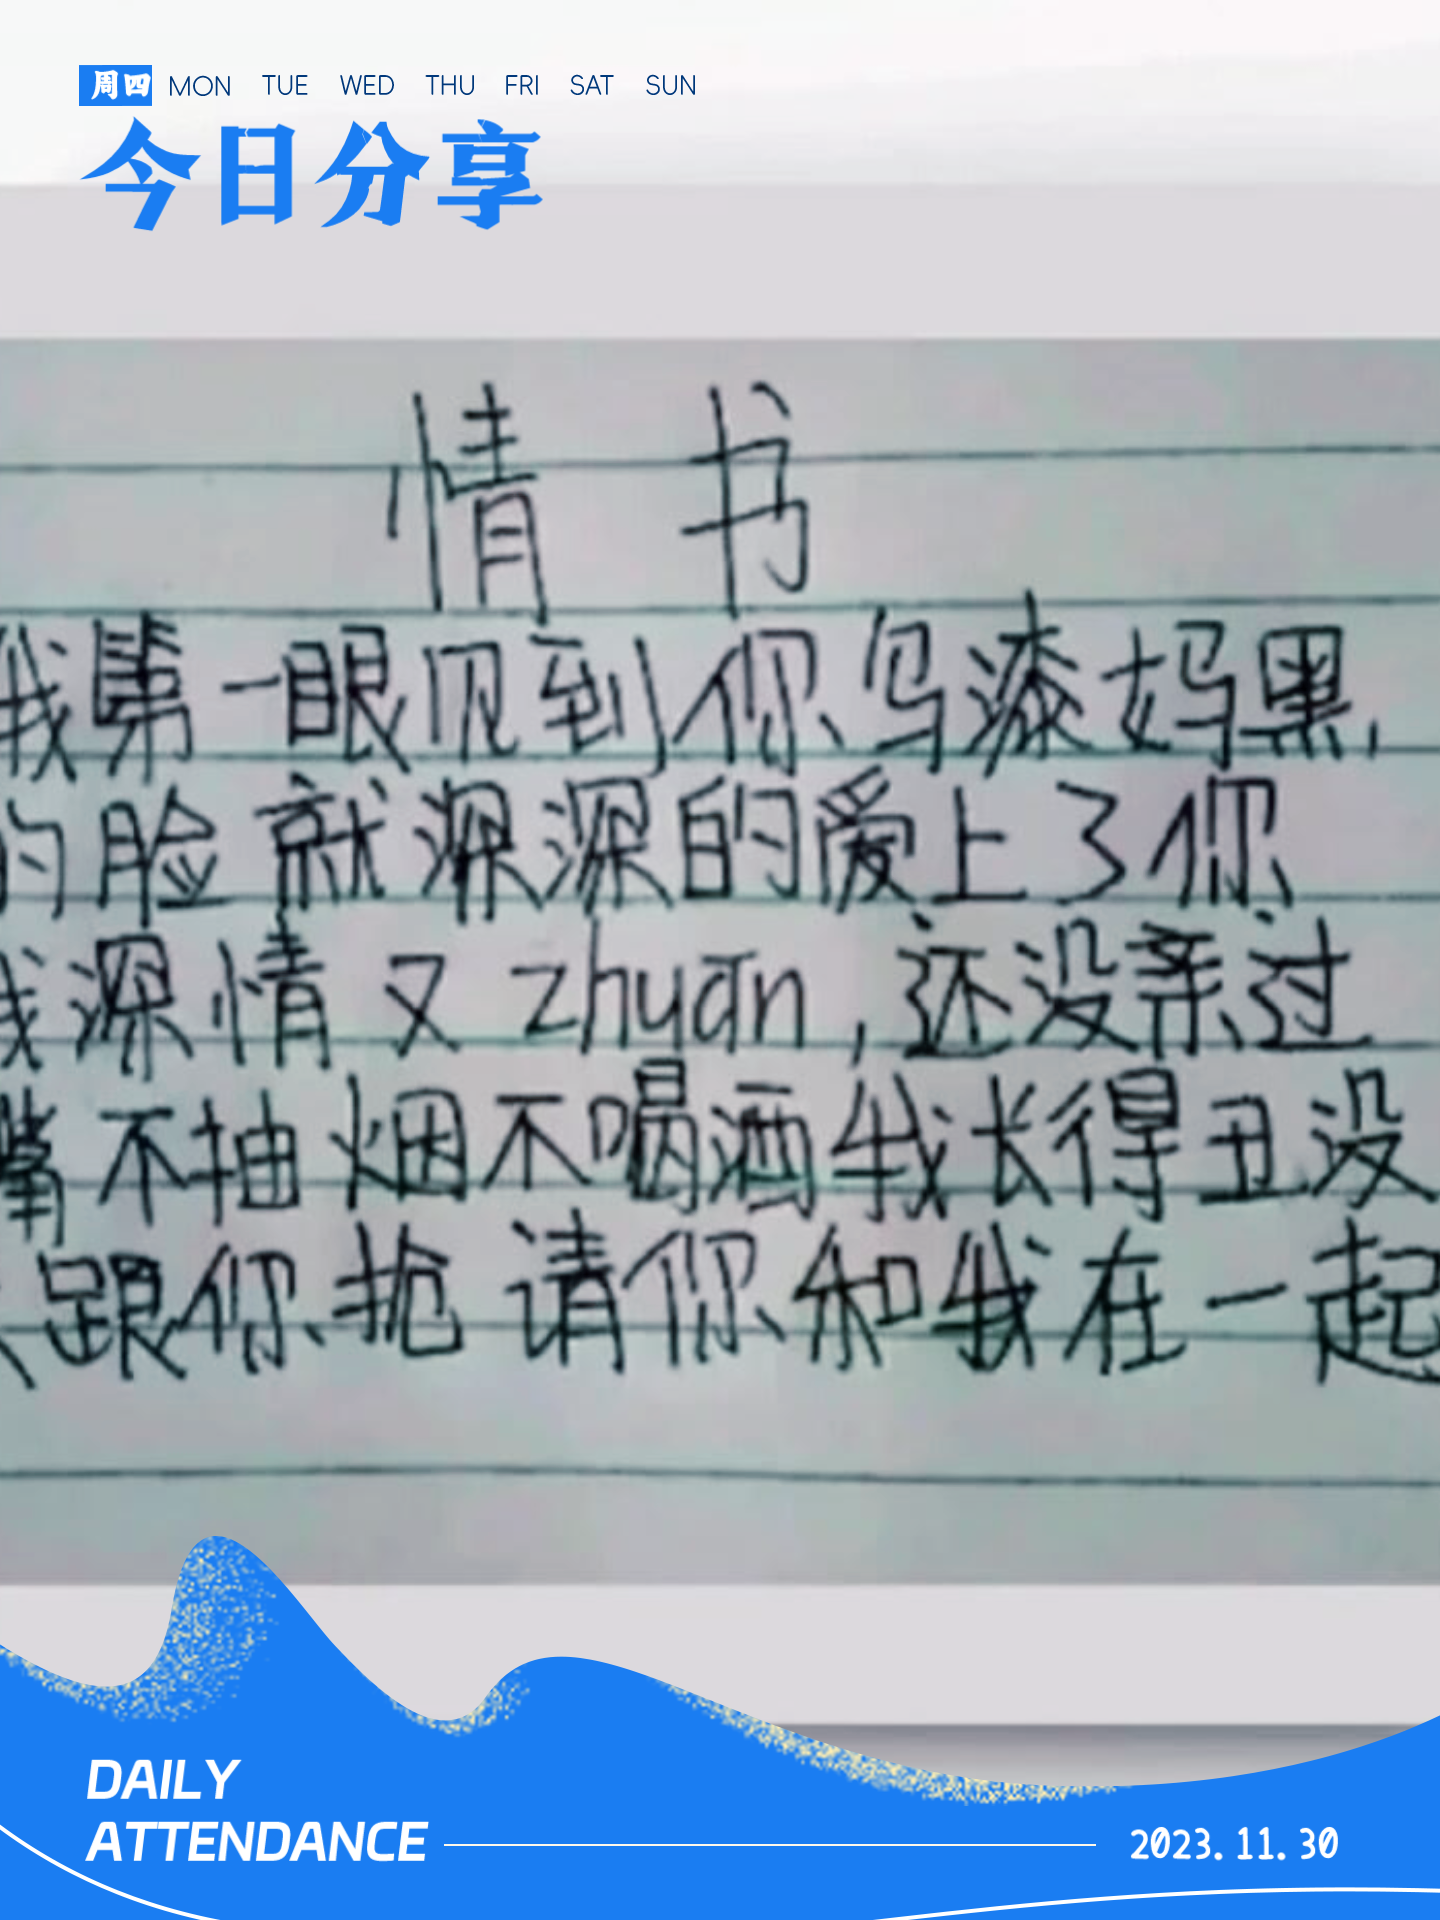 周四 MON TUE WED THU FRI SAT SUN
今日分享
情书
我第一眼见到你乌漆妈黑,
的脸就深深的爱上了你
我深情又zhuān,还没亲过
嘴不抽烟不喝酒我长得丑没
跟你抢请你和我在一起
DAILY
ATTENDANCE
2023.11.30